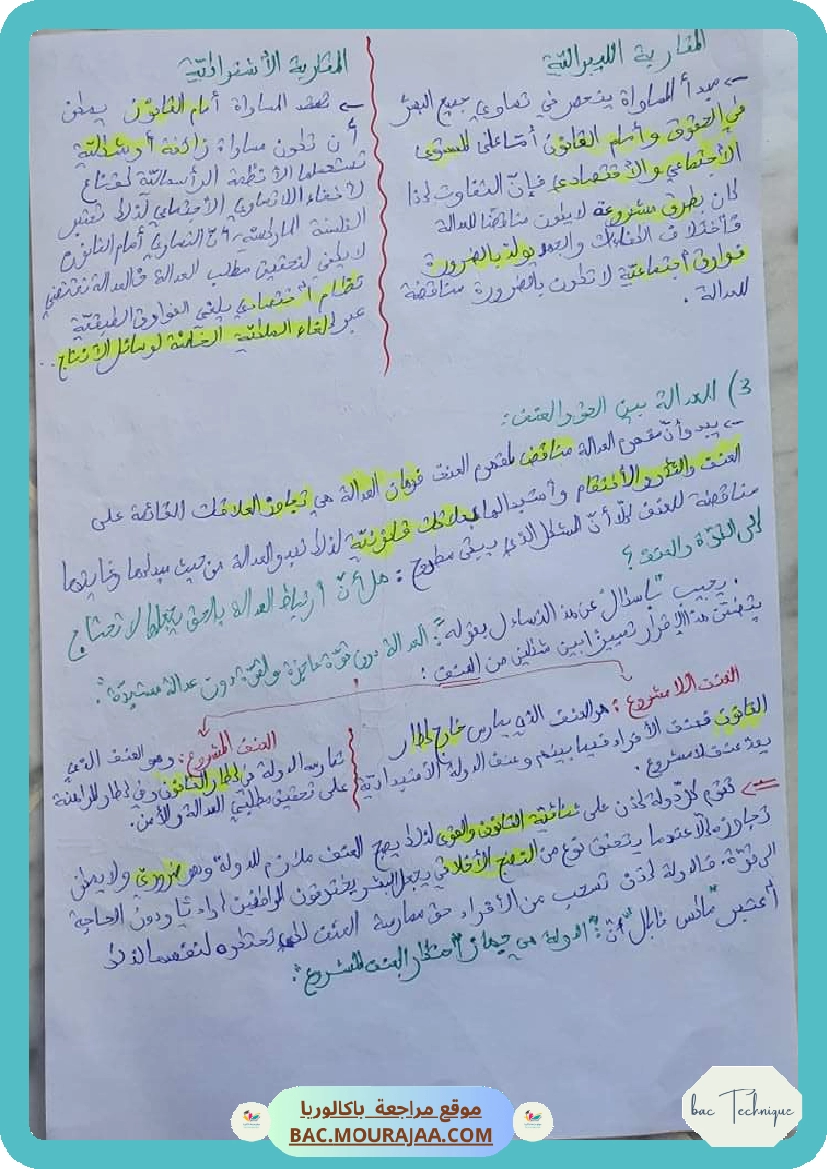 المقاربة الليبرالية
← مبدأ المساواة ينحصر في تساوي جميع البشر
في الحقوق وأمام القانون أمّا على المستوى
الاجتماعي والاقتصادي فإنّ التفاوت إذا
كان بطرق مشروعة لا يكون مناقضا للعدالة
فاختلاف الكفاءات والجهد يولد بالضرورة
فوارق اجتماعيّة لا تكون بالضرورة مناقضة
للعدالة .
المقاربة الاشتراكيّة
← تنتقد المساواة أمام القانون يمكن
أن تكون مساواة زائفة أو شكليّة
تستعملها الأنظمة الرأسماليّة كقناع
لإخفاء اللاتساوي الاجتماعي لذلك تعتبر
الفلسفة الماركسية أنّ التساوي أمام القانون
لا يكفي لتحقيق مطلب العدالة فالعدالة تقتضي
نظام اقتصادي يلغي الفوارق الطبقيّة
عبر إلغاء الملكيّة الخاصّة لوسائل الإنتاج..
3) العدالة بين الحق والعنف:
← يبدو أنّ مفهوم العدالة مناقض لمفهوم العنف فرهان العدالة هي تجاوز العلاقات القائمة على
العنف والثأر والانتقام واستبدالها بعلاقات قانونيّة لذلك تبدو العدالة من حيث مبدئها وغاياتها
مناقضة للعنف إلّا أنّ المشكل الذي يبقى مطروح : هل أنّ ارتباط العدالة بالحق يجعلها لا تحتاج
إلى القوّة والعنف ؟
. يجيب "باسكال" عن هذا التساؤل بقوله : "العدالة دون قوّة عاجزة والقوّة دون عدالة مستبدّة".
يتضمّن هذا الإقرار تمييزا بين شكلين من العنف :
العنف اللامشروع : هو العنف الذي يمارس خارج إطار
القانون فعنف الأفراد فيما بينهم وعنف الدولة الاستبدادية
يعدّ عنف لامشروع .
العنف المشروع : وهو العنف الذي
تمارسه الدولة في إطار القانون وفي إطار المراهنة
على تحقيق مطلبي العدالة والأمن.
⇐ تقوم كل دولة إذن على ثنائيّة القانون والقوى لذلك يصبح العنف ملازم للدولة وهو ضروري ولا يمكن
تجاوزه إلّا عندما يتحقق نوع من النضج الأخلاقي يجعل البشر يحترمون القوانين إراديّا ودون الحاجة
إلى قوّة. فالدولة إذن تسحب من الأفراد حق ممارسة العنف لكي تحتكره لنفسها لذلك
اعتبر "ماكس فايبر" أنّ : "الدولة هي جهاز احتكار العنف المشروع".
bac Technique
موقع مراجعة باكالوريا
BAC.MOURAJAA.COM